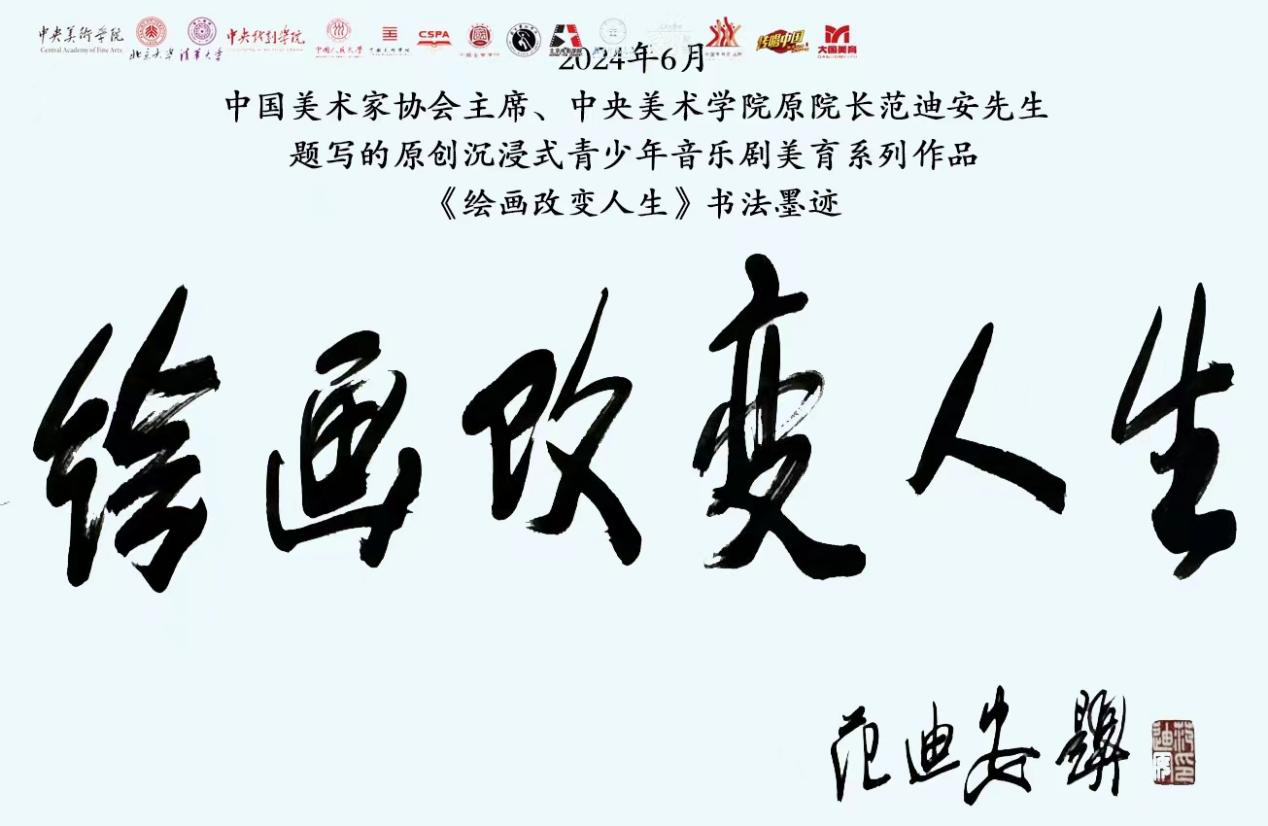 中央美術学院 北京大学 清华大学 中央戏剧学院 CSPA 传唱中国 大国美育
Central Academy of Fine Arts
2024年6月
中国美术家协会主席、中央美术学院原院长范迪安先生
题写的原创沉浸式青少年音乐剧美育系列作品
《绘画改变人生》书法墨迹
绘画改变人生
范迪安题